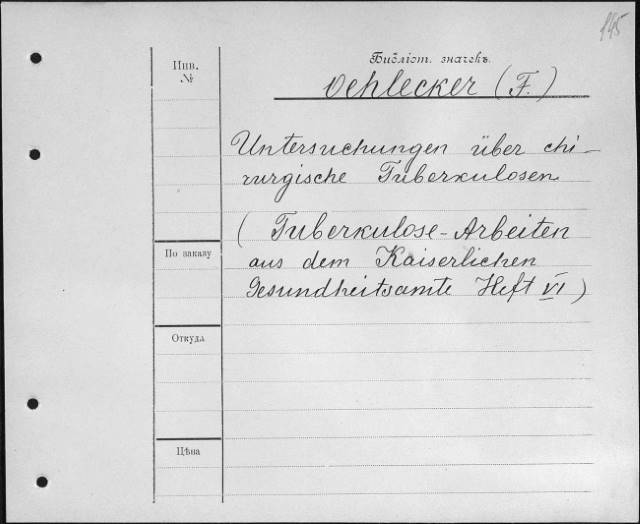 145
Инв.
№
Библіот. значекъ.
Oehlecker (F.)
Untersuchungen über chi-
rurgische Tuberkulosen
(Tuberkulose-Arbeiten
По заказу
aus dem Kaiserlichen
Gesundheitsamte Heft VI)
Откуда
Цѣна